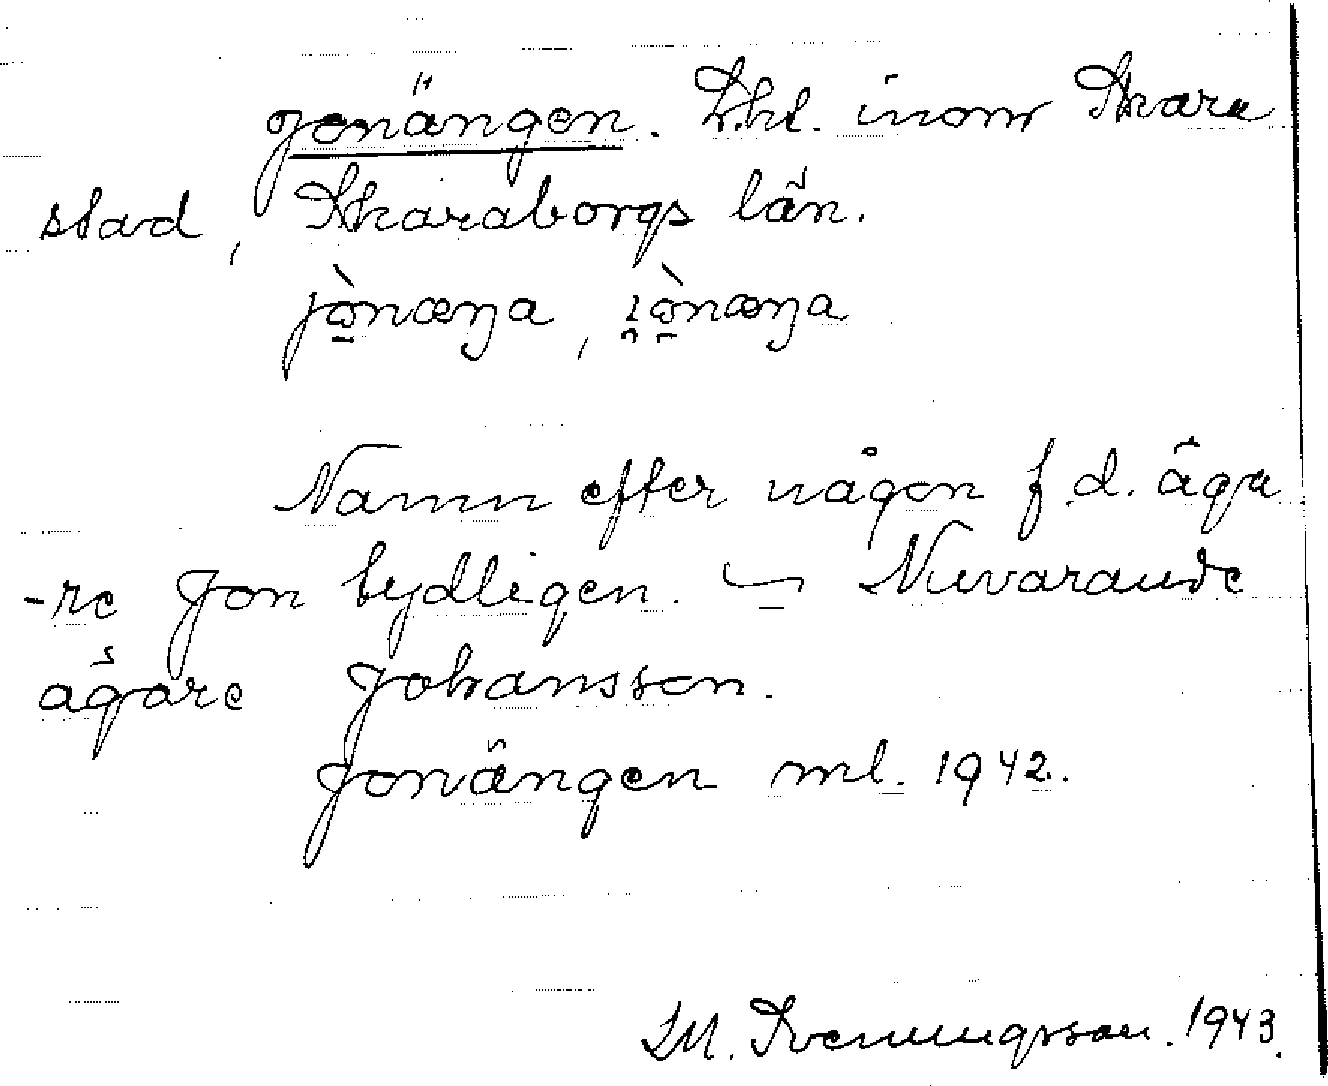 Jonängen. Lht. inom Skara
stad, Skaraborgs län.
jònæŋa, ı̯ònæŋa
Namn efter någon f.d. äga
-re Jon tydligen. – Nuvarande
ägare Johansson.
Jonängen ml. 1942.
M. Svenningsson. 1943.